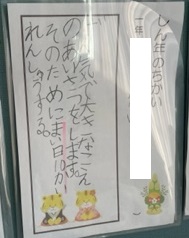 しん年のちかい
一年
元気で大きなこえ
のあいさつをします。
そのためにまい日10かい
れんしゅうする。